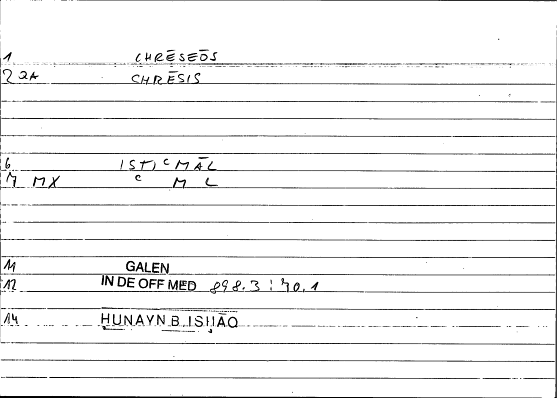 1 CHRĒSEŌS
2 2A CHRĒSIS
6 ISTIᶜMĀL
7 MX ᶜ M L
11 GALEN
12 IN DE OFF MED 898.3 : 40.1
14 ḤUNAYN B. ISḤĀQ